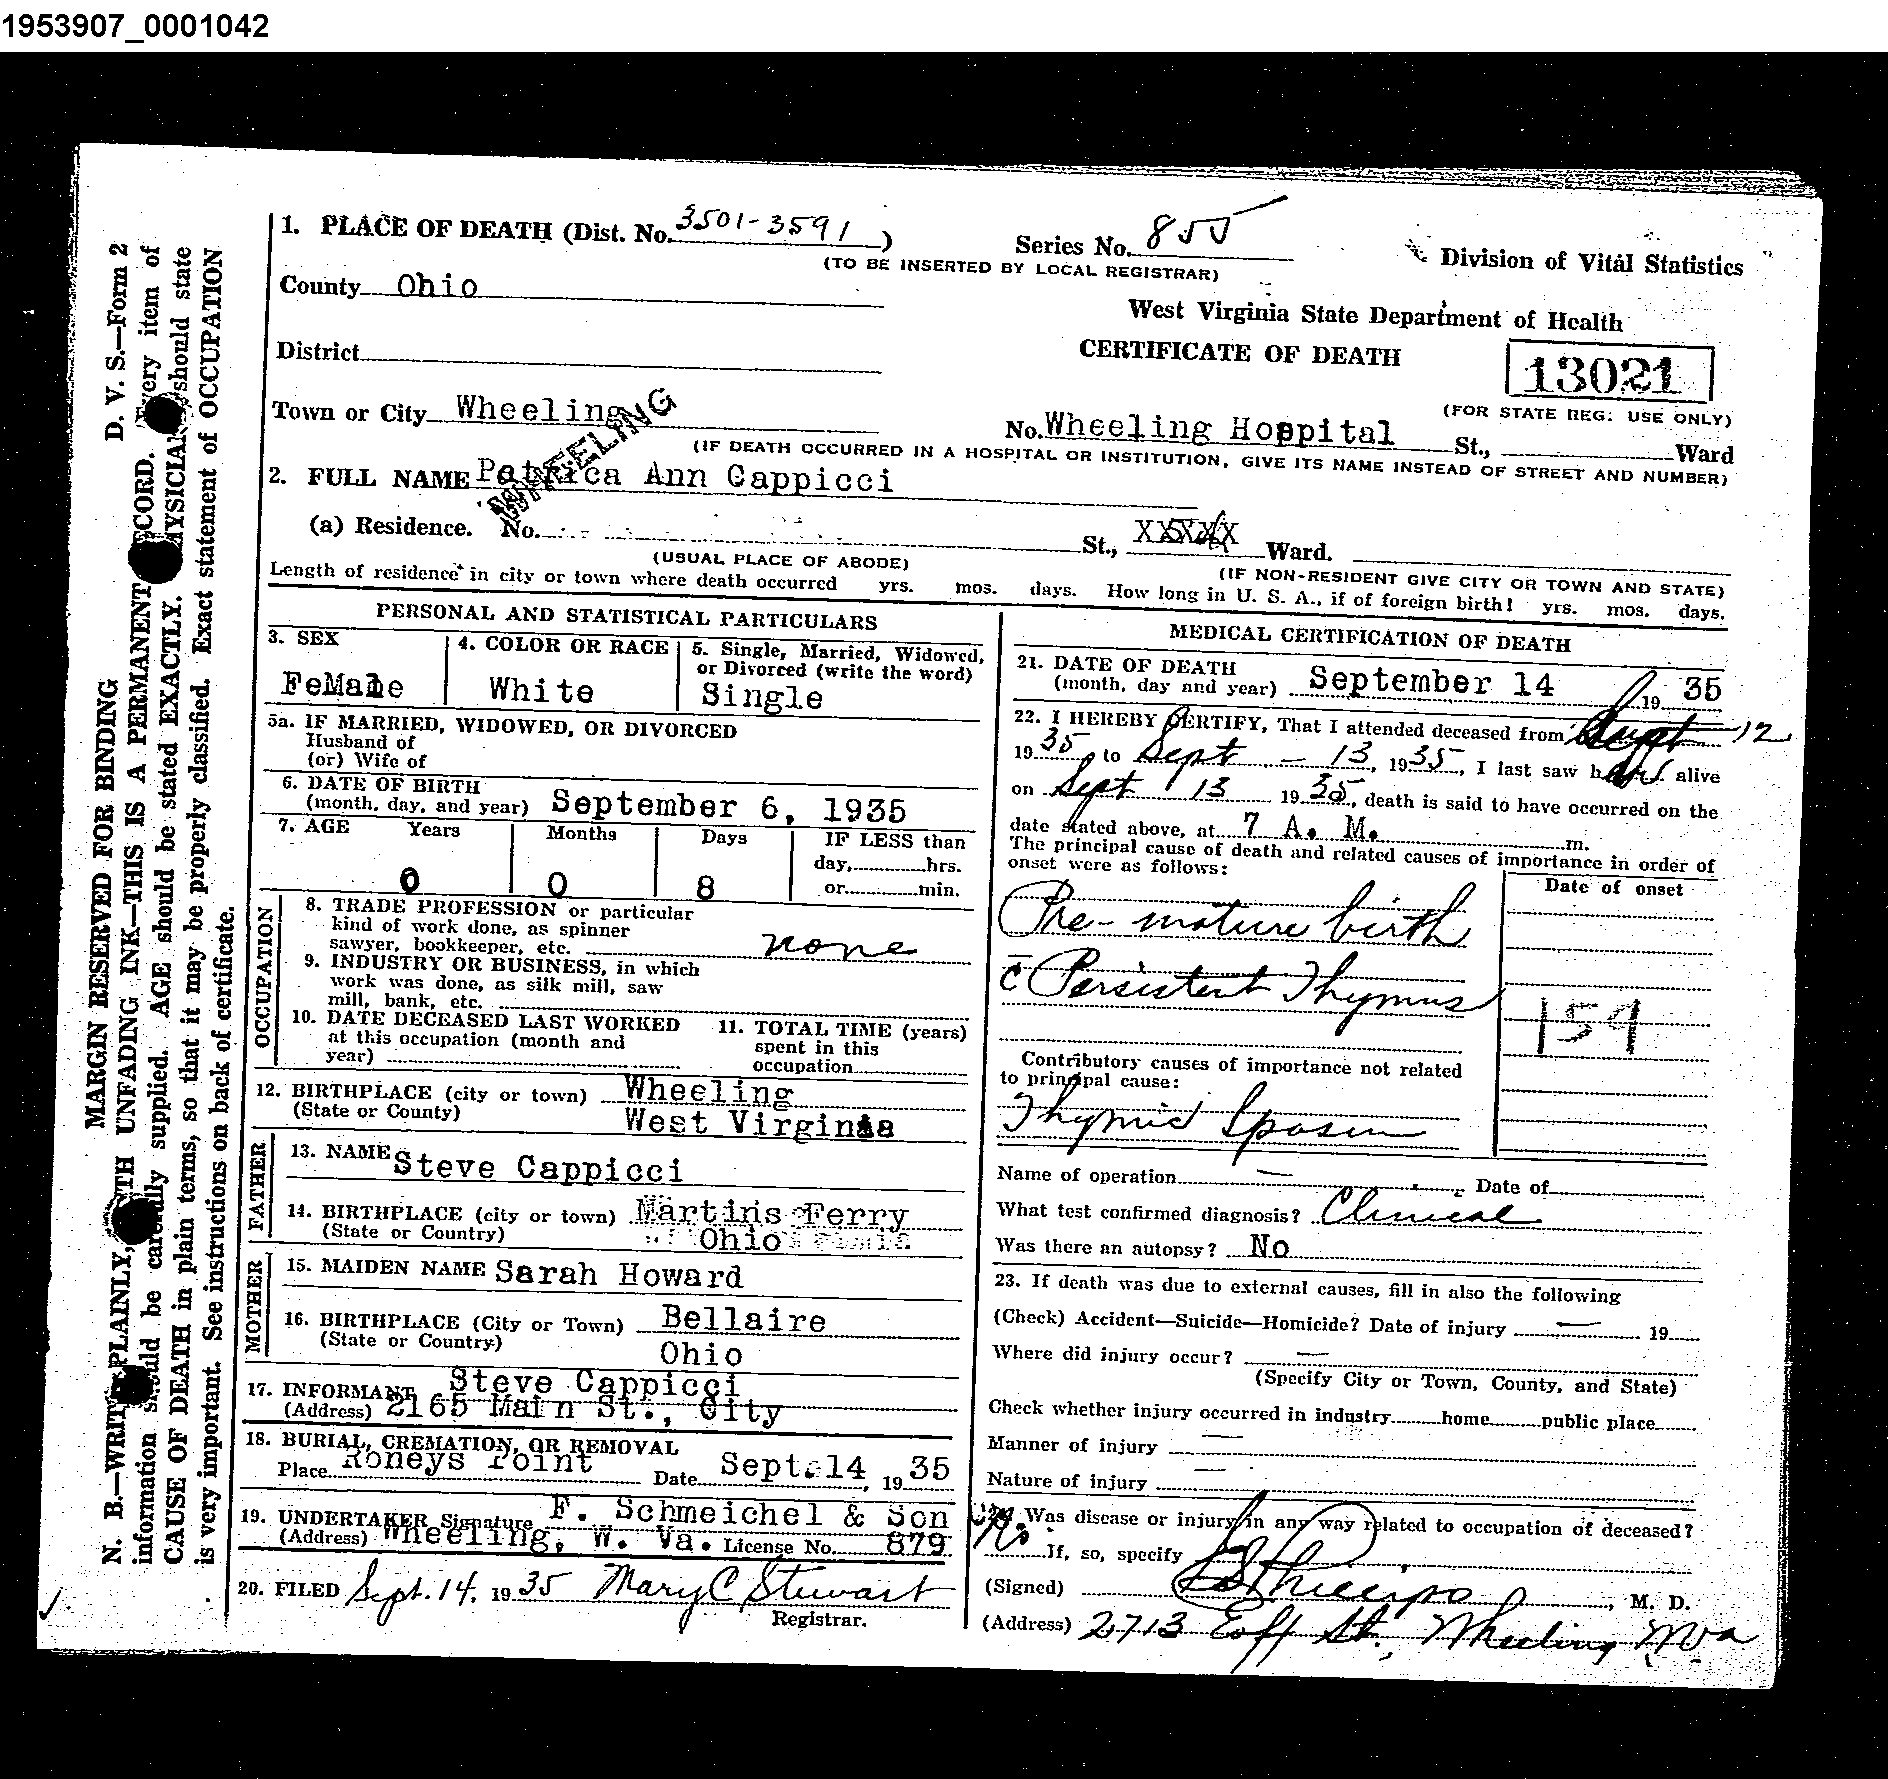 1953907_0001042
1. PLACE OF DEATH (Dist. No. 3501-3591)
Series No. 855
(TO BE INSERTED BY LOCAL REGISTRAR)
Division of Vital Statistics
County Ohio
West Virginia State Department of Health
District
CERTIFICATE OF DEATH
13021
(FOR STATE REG. USE ONLY)
Town or City Wheeling
WHEELING
No. Wheeling Hospital St., Ward
(IF DEATH OCCURRED IN A HOSPITAL OR INSTITUTION, GIVE ITS NAME INSTEAD OF STREET AND NUMBER)
2. FULL NAME Patrica Ann Cappicci
(a) Residence. No. St., XXXXX Ward.
(USUAL PLACE OF ABODE)
(IF NON-RESIDENT GIVE CITY OR TOWN AND STATE)
Length of residence in city or town where death occurred yrs. mos. days. How long in U. S. A., if of foreign birth! yrs. mos. days.
PERSONAL AND STATISTICAL PARTICULARS
3. SEX
FeMale
4. COLOR OR RACE
White
5. Single, Married, Widowed,
or Divorced (write the word)
Single
5a. IF MARRIED, WIDOWED, OR DIVORCED
Husband of
(or) Wife of
6. DATE OF BIRTH
(month, day, and year) September 6, 1935
7. AGE Years Months Days IF LESS than
day, hrs.
or min.
0 0 8
OCCUPATION
8. TRADE PROFESSION or particular
kind of work done, as spinner
sawyer, bookkeeper, etc. none
9. INDUSTRY OR BUSINESS, in which
work was done, as silk mill, saw
mill, bank, etc.
10. DATE DECEASED LAST WORKED
at this occupation (month and
year)
11. TOTAL TIME (years)
spent in this
occupation
12. BIRTHPLACE (city or town) Wheeling
(State or County) West Virginia
FATHER
13. NAME Steve Cappicci
14. BIRTHPLACE (city or town) Martins Ferry
(State or Country) Ohio
MOTHER
15. MAIDEN NAME Sarah Howard
16. BIRTHPLACE (City or Town) Bellaire
(State or Country) Ohio
17. INFORMANT Steve Cappicci
(Address) 2165 Main St., City
18. BURIAL, CREMATION, OR REMOVAL
Place Roneys Point Date Sept. 14, 1935
19. UNDERTAKER Signature F. Schmeichel & Son
(Address) Wheeling, W. Va. License No. 879
20. FILED Sept. 14, 1935 Mary C Stewart
Registrar.
MEDICAL CERTIFICATION OF DEATH
21. DATE OF DEATH
(month, day and year) September 14 19 35
22. I HEREBY CERTIFY, That I attended deceased from Sept 12
1935 to Sept - 13, 1935, I last saw her alive
on Sept 13 1935, death is said to have occurred on the
date stated above, at 7 A. M. m.
The principal cause of death and related causes of importance in order of
onset were as follows:
Date of onset
Pre-mature birth
c̄ Persistent Thymus
159
Contributory causes of importance not related
to principal cause:
Thymic Spasm
Name of operation — Date of
What test confirmed diagnosis? Clinical
Was there an autopsy? No
23. If death was due to external causes, fill in also the following
(Check) Accident—Suicide—Homicide? Date of injury — 19
Where did injury occur? —
(Specify City or Town, County, and State)
Check whether injury occurred in industry home public place
Manner of injury —
Nature of injury —
24. Was disease or injury in any way related to occupation of deceased?
No. If, so, specify
(Signed) Phillips, M. D.
(Address) 2713 Eoff St., Wheeling WVa
D. V. S.—Form 2
MARGIN RESERVED FOR BINDING
N. B.—WRITE PLAINLY, WITH UNFADING INK—THIS IS A PERMANENT RECORD. Every item of
information should be carefully supplied. AGE should be stated EXACTLY. PHYSICIAN should state
CAUSE OF DEATH in plain terms, so that it may be properly classified. Exact statement of OCCUPATION
is very important. See instructions on back of certificate.